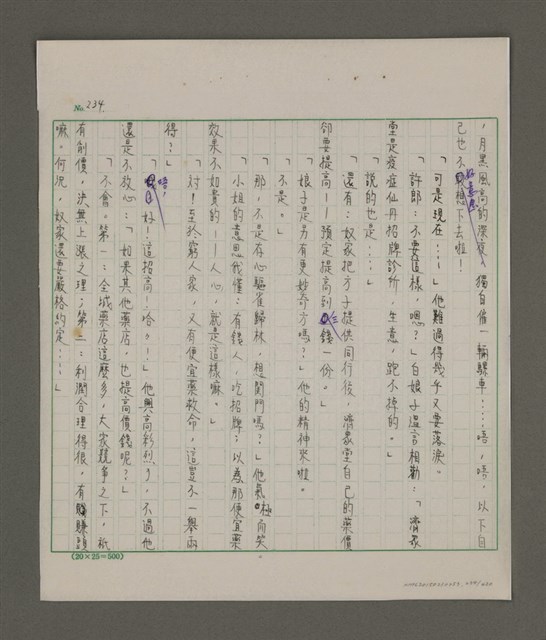 No. 234.
，月黑風高的深夜，獨自催一輛騾車……唔，唔，以下自
己也不好意思想下去啦！
「可是現在……」他難過得幾乎又要落淚。
「許郎：不要這樣，嗯？」白娘子溫言相勸：「濟眾
堂是瘟症仙丹招牌診所，生意，跑不掉的。」
「說的也是……」
「還有：奴家把方子提供同行後，濟眾堂自己的藥價
卻要提高——預定提高到三錢一份。」
「娘子是另有更妙奇方嗎？」他的精神來啦。
「不是。」
「那，不是存心驅雀歸林，想關門嗎？」他氣極向笑
「小姐的意思我懂：有錢人，吃招牌；以為那便宜藥
效果不如貴的——人心，就是這樣嘛。」
「對！至於窮人家，又有便宜藥救命，這豈不一舉兩
得？」
「唔，好！這招高！哈。！」他興高彩烈了，不過他
還是不放心：「如果其他藥店，也提高價錢呢？」
「不會。第一：全城藥店這麼多，大家競爭之下，祇
有削價，決無上漲之理；第二：利潤合理得很，有賺頭
嘛。何況，奴家還要嚴格約定……」
(20×25=500)